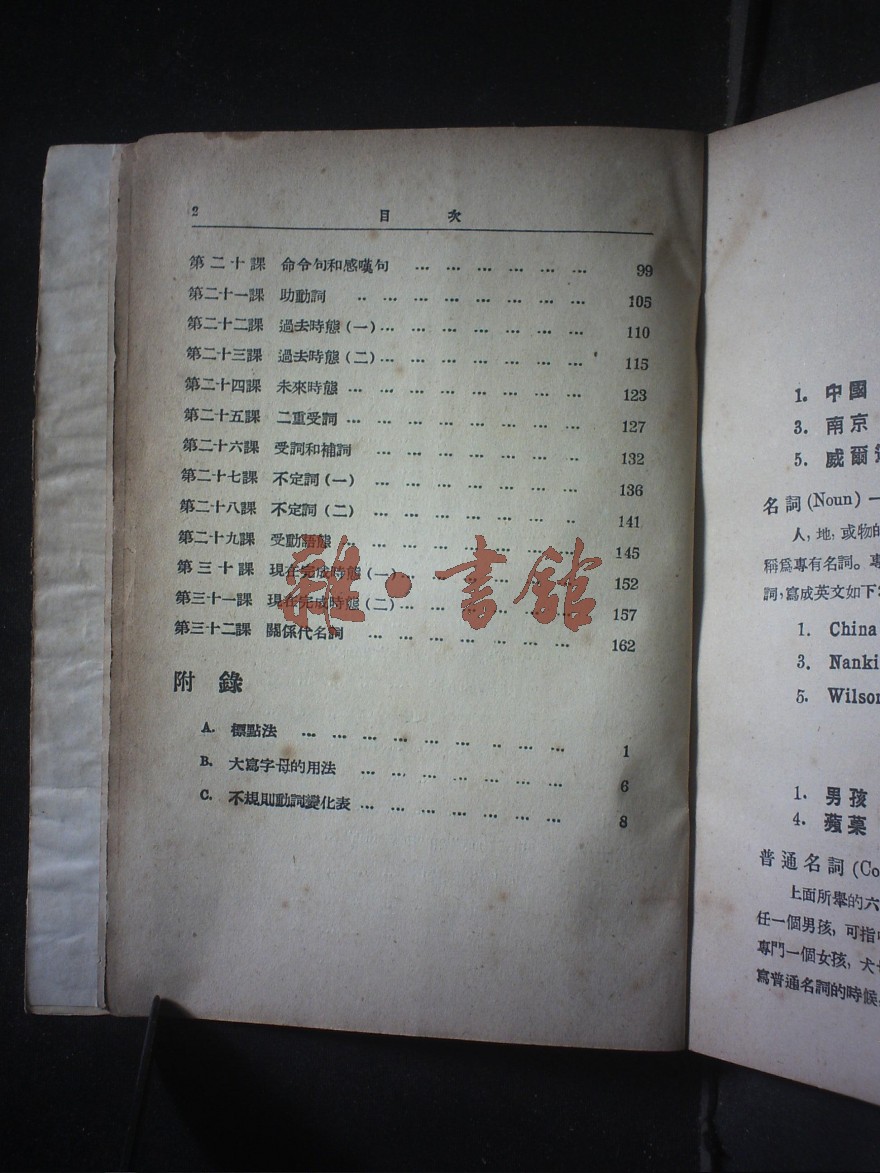 2 目 次
第二十課 命令句和感嘆句 … … … … … … 99
第二十一課 助動詞 ‥ … … … … … … … 105
第二十二課 過去時態(一)… … … … … … … 110
第二十三課 過去時態(二)… … … … … … … 115
第二十四課 未來時態 … … … … … … … … 123
第二十五課 二重受詞 … … … … … … … … 127
第二十六課 受詞和補詞 … … … … … … … 132
第二十七課 不定詞(一) … … … … … … … 136
第二十八課 不定詞(二) … … … … … … ‥ 141
第二十九課 受動語態 ‥ … … … … … … … 145
第三十課 現在完成時態(一)… … … … … … 152
第三十一課 現在完成時態(二)… … … … … … 157
第三十二課 關係代名詞 … … … … … … … 162
雜·書館
附 錄
A. 標點法 … … … … … … ‥ … … 1
B. 大寫字母的用法 … … … … … … … 6
C. 不規則動詞變化表 … … … … … … … 8
1. 中國
3. 南京
5. 威爾
名詞(Noun)一
人,地,或物的
稱爲專有名詞。專
詞,寫成英文如下
1. China
3. Nanki
5. Wilson
1. 男孩
4. 蘋菓
普通名詞(Co
上面所舉的六
任一個男孩,可指
專門一個女孩,犬
寫普通名詞的時候